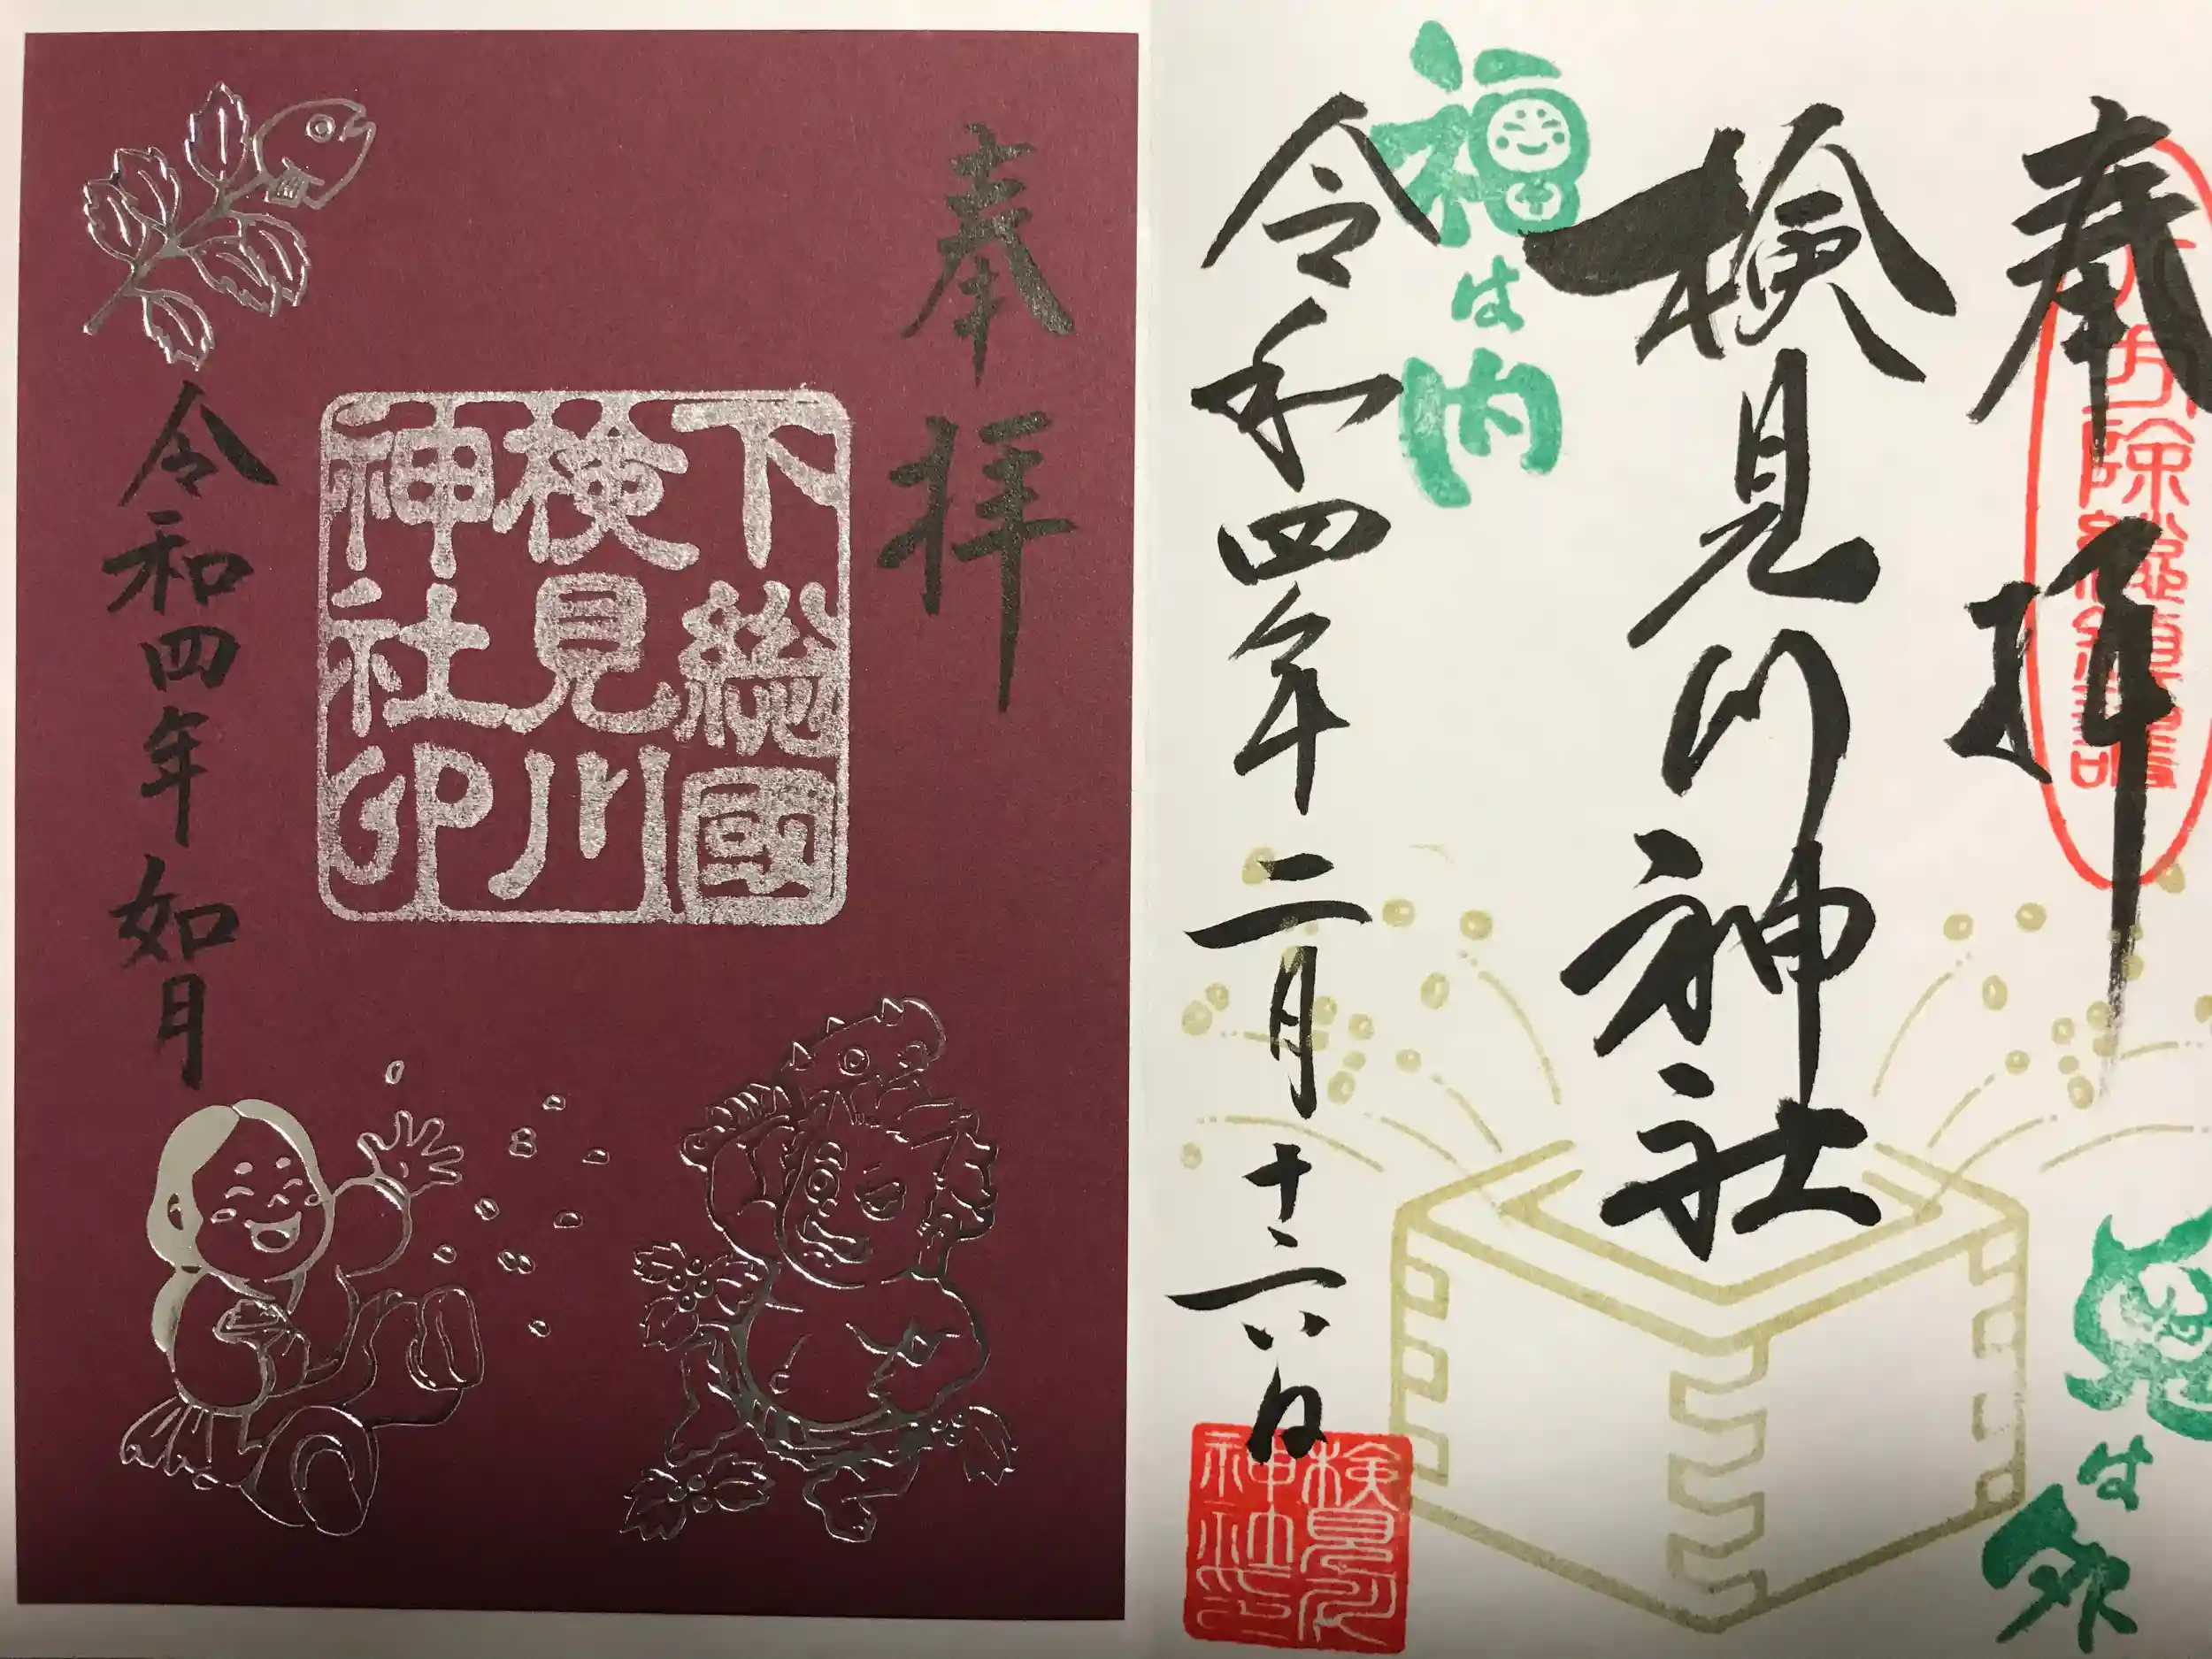 奉拝
八方除総鎮護
鬼は外
検見川神社
福は内
令和四年二月十六日
検見川
神社
奉拝
下総國
検見川
神社印
令和四年如月